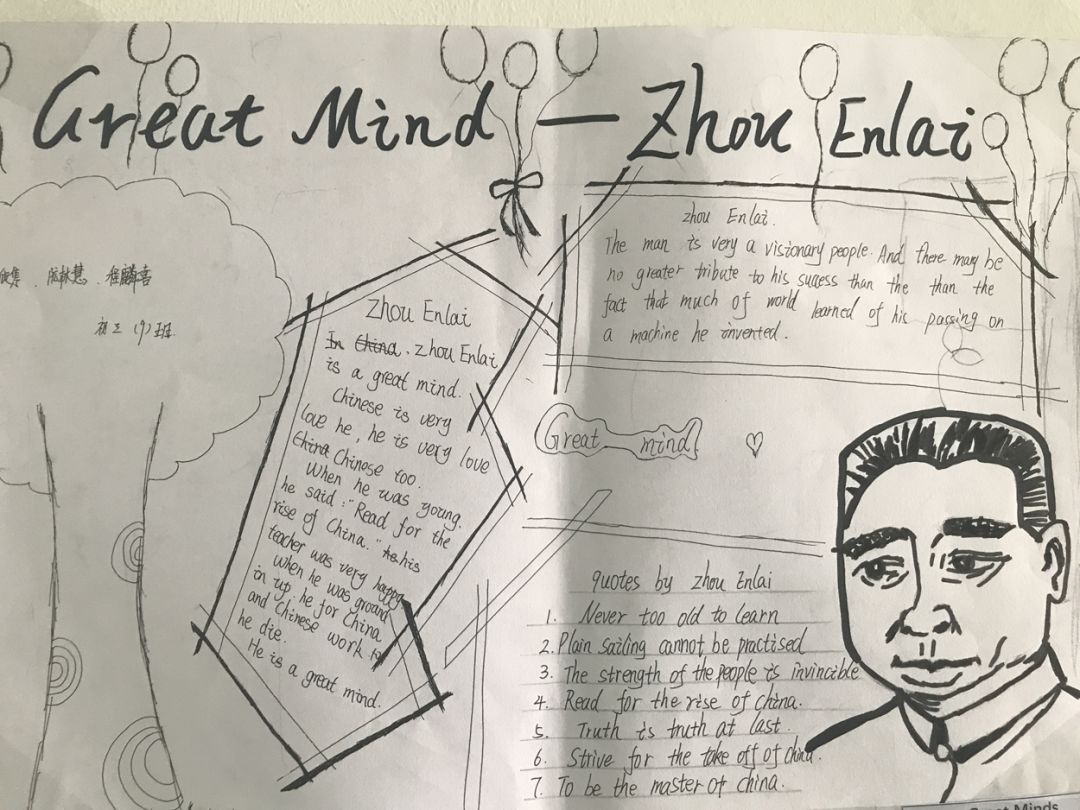 Great Mind — Zhou Enlai
初三(9)班
Zhou Enlai
In China. Zhou Enlai
is a great mind.
Chinese is very
love he, he is very love
China Chinese too.
When he was young.
he said: "Read for the
rise of China." he his
teacher was very happy
When he was ground
in up, he for China
and Chinese work to
he die.
He is a great mind.
zhou Enlai.
The man is very a visionary people. And there may be
no greater tribute to his success than the than the
fact that much of world learned of his passing on
a machine he invented.
Great mind
quotes by zhou Enlai
1. Never too old to learn
2. Plain sailing cannot be practised
3. The strength of the people is invincible
4. Read for the rise of China.
5. Truth is truth at last.
6. Strive for the take off of china.
7. To be the master of china.
Great Minds